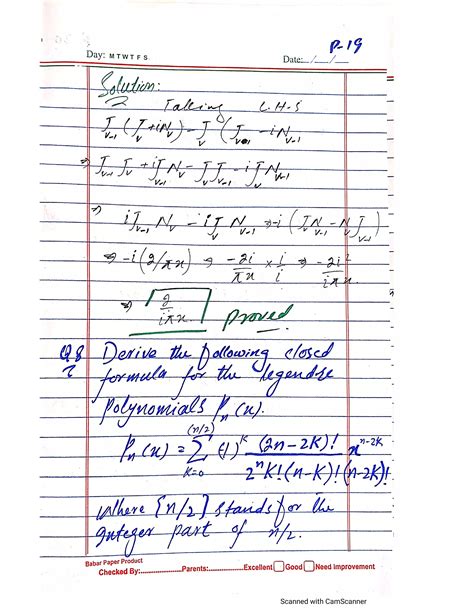 P-19
Day: M T W T F S Date:__/__/__
Solution:
Taking L.H.S
J_{ν-1} (J_ν + iN_ν) - J_ν (J_{ν-1} - iN_{ν-1}
⇒ J_{ν-1} J_ν + iJ_{ν-1} N_ν - J_ν J_{ν-1} - iJ_ν N_{ν-1}
⇒ iJ_{ν-1} N_ν - iJ_ν N_{ν-1} ⇒ -i (J_ν N_{ν-1} - N_ν J_{ν-1})
⇒ -i (2/πx) ⇒ -2i/πx × i/i ⇒ -2i²/iπx
⇒ 2/iπx proved
Q8 Derive the following closed
formula for the legendre
polynomials P_n(x).
P_n(x) = Σ_{K=0}^{(n/2)} (-1)^k (2n-2K)! / 2^n K! (n-K)! (n-2K)! x^{n-2K}
where [n/2] stands for the
integer part of n/2.
Babar Paper Product
Checked By:............ Parents:............ Excellent Good Need improvement
Scanned with CamScanner